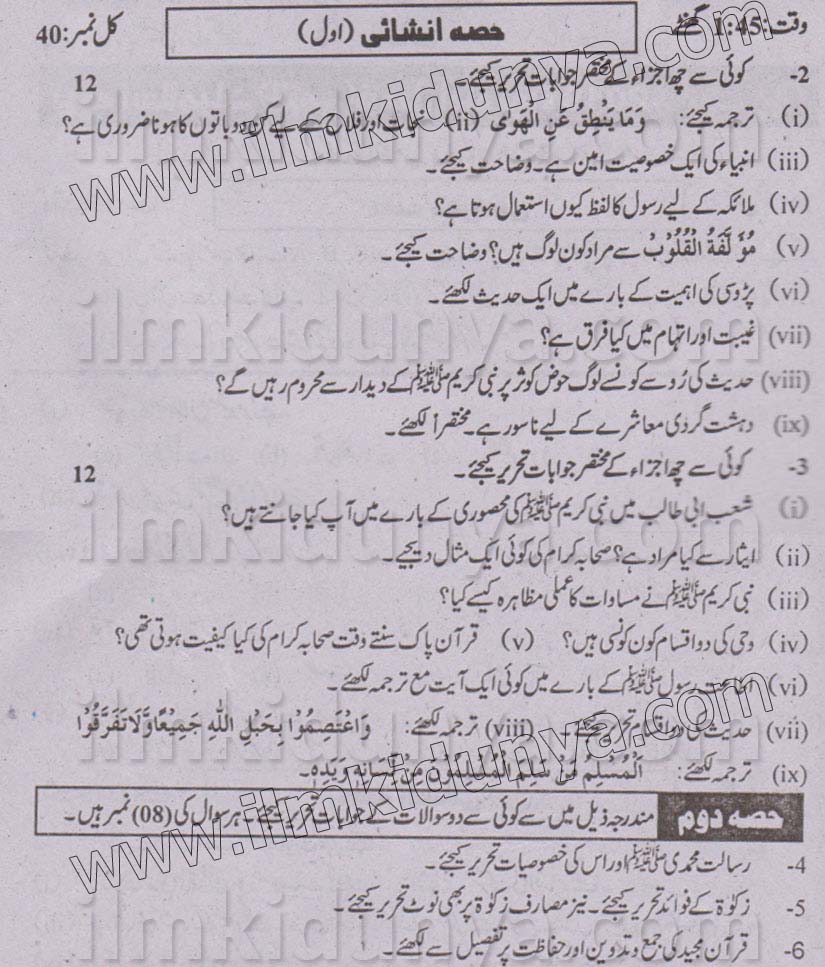 وقت:1:45 گھنٹے حصہ انشائی (اول) کل نمبر:40
2- کوئی سے چھ اجزاء کے مختصر جوابات تحریر کیجئے۔ 12
(i) ترجمہ کیجئے: وَمَا يَنْطِقُ عَنِ الْهَوٰى (ii) نجات اور فلاح کے لیے کن دو باتوں کا ہونا ضروری ہے؟
(iii) انبیاء کی ایک خصوصیت امین ہے۔ وضاحت کیجئے۔
(iv) ملائکہ کے لیے رسول کا لفظ کیوں استعمال ہوتا ہے؟
(v) مُؤَلَّفَةُ الْقُلُوْبُ سے مراد کون لوگ ہیں؟ وضاحت کیجئے۔
(vi) پڑوسی کی اہمیت کے بارے میں ایک حدیث لکھئے۔
(vii) غیبت اور اتہام میں کیا فرق ہے؟
(viii) حدیث کی رُو سے کونسے لوگ حوض کوثر پر نبی کریم ﷺ کے دیدار سے محروم رہیں گے؟
(ix) دہشت گردی معاشرے کے لیے ناسور ہے۔ مختصراً لکھئے۔
3- کوئی سے چھ اجزاء کے مختصر جوابات تحریر کیجئے۔ 12
(i) شعب ابی طالب میں نبی کریم ﷺ کی محصوری کے بارے میں آپ کیا جانتے ہیں؟
(ii) ایثار سے کیا مراد ہے؟ صحابہ کرام کی کوئی ایک مثال دیجیے۔
(iii) نبی کریم ﷺ نے مساوات کا عملی مظاہرہ کیسے کیا؟
(iv) وحی کی دو اقسام کون کونسی ہیں؟ (v) قرآن پاک سنتے وقت صحابہ کرام کی کیا کیفیت ہوتی تھی؟
(vi) اطاعت رسول ﷺ کے بارے میں کوئی ایک آیت مع ترجمہ لکھئے۔
(vii) حدیث کی دو اقسام تحریر کیجئے۔ (viii) ترجمہ لکھئے: وَاعْتَصِمُوْا بِحَبْلِ اللّٰهِ جَمِيْعًا وَّلَا تَفَرَّقُوْا
(ix) ترجمہ لکھئے: اَلْمُسْلِمُ مَنْ سَلِمَ الْمُسْلِمُوْنَ مِنْ لِّسَانِهٖ وَيَدِهٖ۔
حصہ دوم مندرجہ ذیل میں سے کوئی سے دو سوالات کے جوابات تحریر کیجئے۔ ہر سوال کی (08) نمبر ہیں۔
4- رسالت محمدی ﷺ اور اس کی خصوصیات تحریر کیجئے۔
5- زکوٰۃ کے فوائد تحریر کیجئے۔ نیز مصارف زکوٰۃ پر بھی نوٹ تحریر کیجئے۔
6- قرآن مجید کی جمع و تدوین اور حفاظت پر تفصیل سے لکھئے۔
www.ilmkidunya.com
www.ilmkidunya.com
ilmkidunya.com
ilmkidunya.com
ilmkidunya.com
ilmkidunya.com
ilmkidunya.com